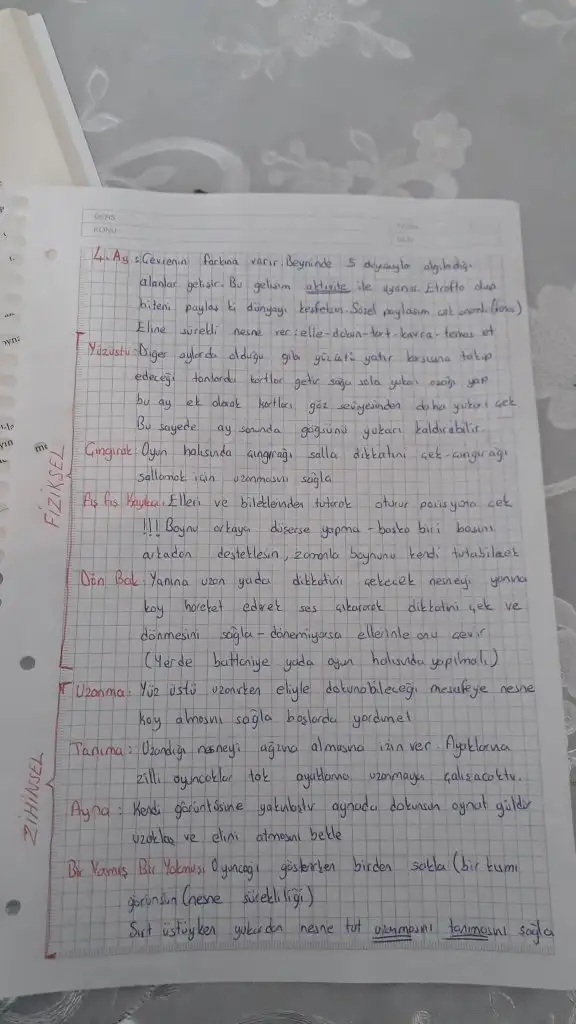 DERS
KONU
4. Ay : Çevrenin farkına varır. Beyninde 5 duyusuyla algıladığı
alanlar gelişir. Bu gelişim aktivite ile uyanır. Etrafta olup
biteni paylaş ki dünyayı keşfetsin. Sözel paylaşım çok önemli
Eline sürekli nesne ver : elle-dokun-tart-kavra-temas et
Yüzüstü : Diğer aylarda olduğu gibi yüzüstü yatır karşısına takip
edeceği tonlarda kartlar getir sağa sola yukarı aşağı yap
bu ay ek olarak kartları göz seviyesinden daha yukarı çek
Bu sayede ay sonunda göğsünü yukarı kaldırabilir.
Çıngırak : Oyun halısında çıngırağı salla dikkatini çek-çıngırağı
sallamak için uzanmasını sağla
FİZİKSEL
Fış Fış Kayıkçı : Elleri ve bileklerinden tutarak oturur pozisyona çek
!!! Boynu arkaya düşerse yapma - başka biri başını
arkadan desteklesin, zamanla boynunu kendi tutabilecek
Dön Bak : Yanına uzan yada dikkatini çekecek nesneyi yanına
koy hareket ederek ses çıkararak dikkatini çek ve
dönmesini sağla - dönemiyorsa ellerinle onu çevir
(Yerde battaniye yada oyun halısında yapılmalı)
Uzanma : Yüz üstü uzanırken eliyle dokunabileceği mesafeye nesne
koy almasını sağla başlarda yardım et
Tanıma : Uzandığı nesneyi ağzına almasına izin ver. Ayaklarına
zilli oyuncaklar tak ayaklarına uzanmaya çalışacaktır.
ZİHİNSEL
Ayna : Kendi görüntüsüne yakınlaştır aynada dokunsun oynat güldür
uzaklaş ve elini atmasını bekle
Bir Varmış Bir Yokmuş : Oyuncağı gösterirken birden sakla (bir kısmı
görünsün (nesne sürekliliği)
Sırt üstüyken yukarıdan nesne tut uzanmasını tanımasını sağla